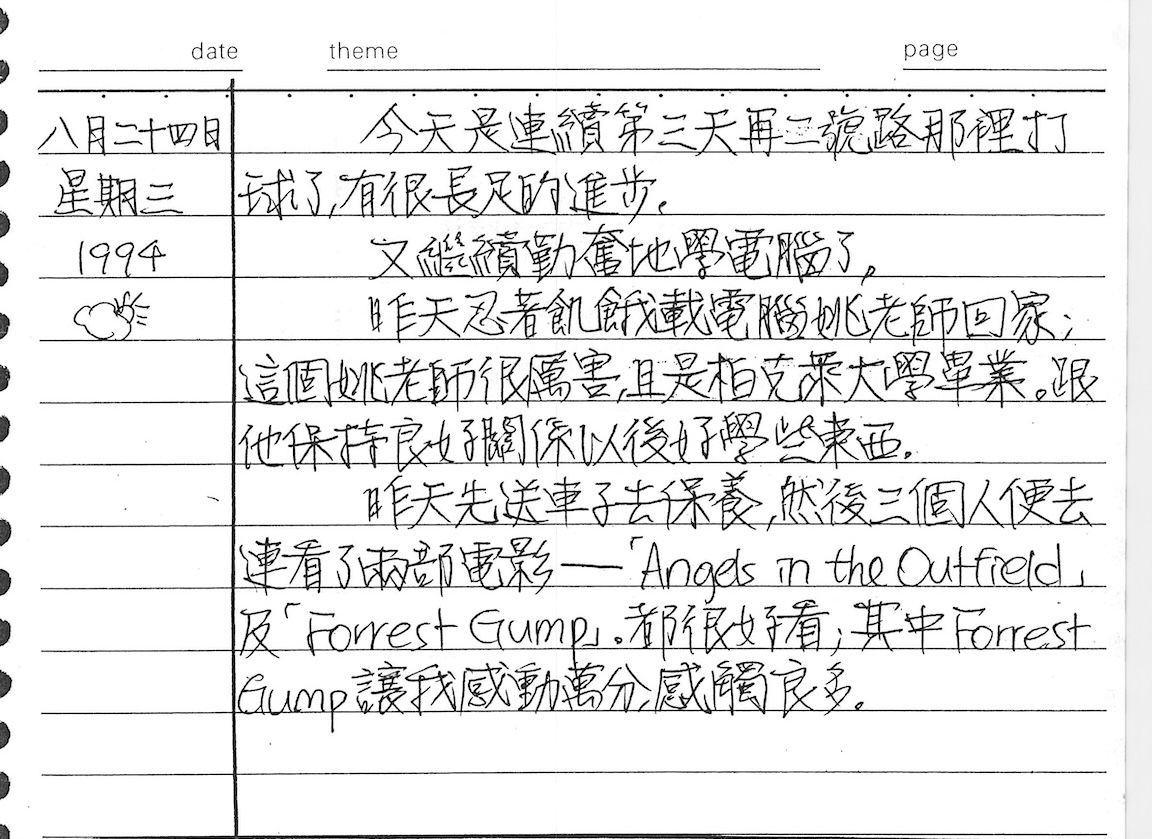 date theme page
八月二十四日
星期三
1994
今天是連續第三天再二號路那裡打
球了,有很長足的進步。
又繼續勤奮地學電腦了。
昨天忍著飢餓載電腦姚老師回家;
這個姚老師很厲害,且是柏克萊大學畢業。跟
他保持良好關係以後好學些東西。
昨天先送車子去保養,然後三個人便去
連看了兩部電影—「Angels in the Outfield」
及「Forrest Gump」。都很好看;其中Forrest
Gump讓我感動萬分;感觸良多。